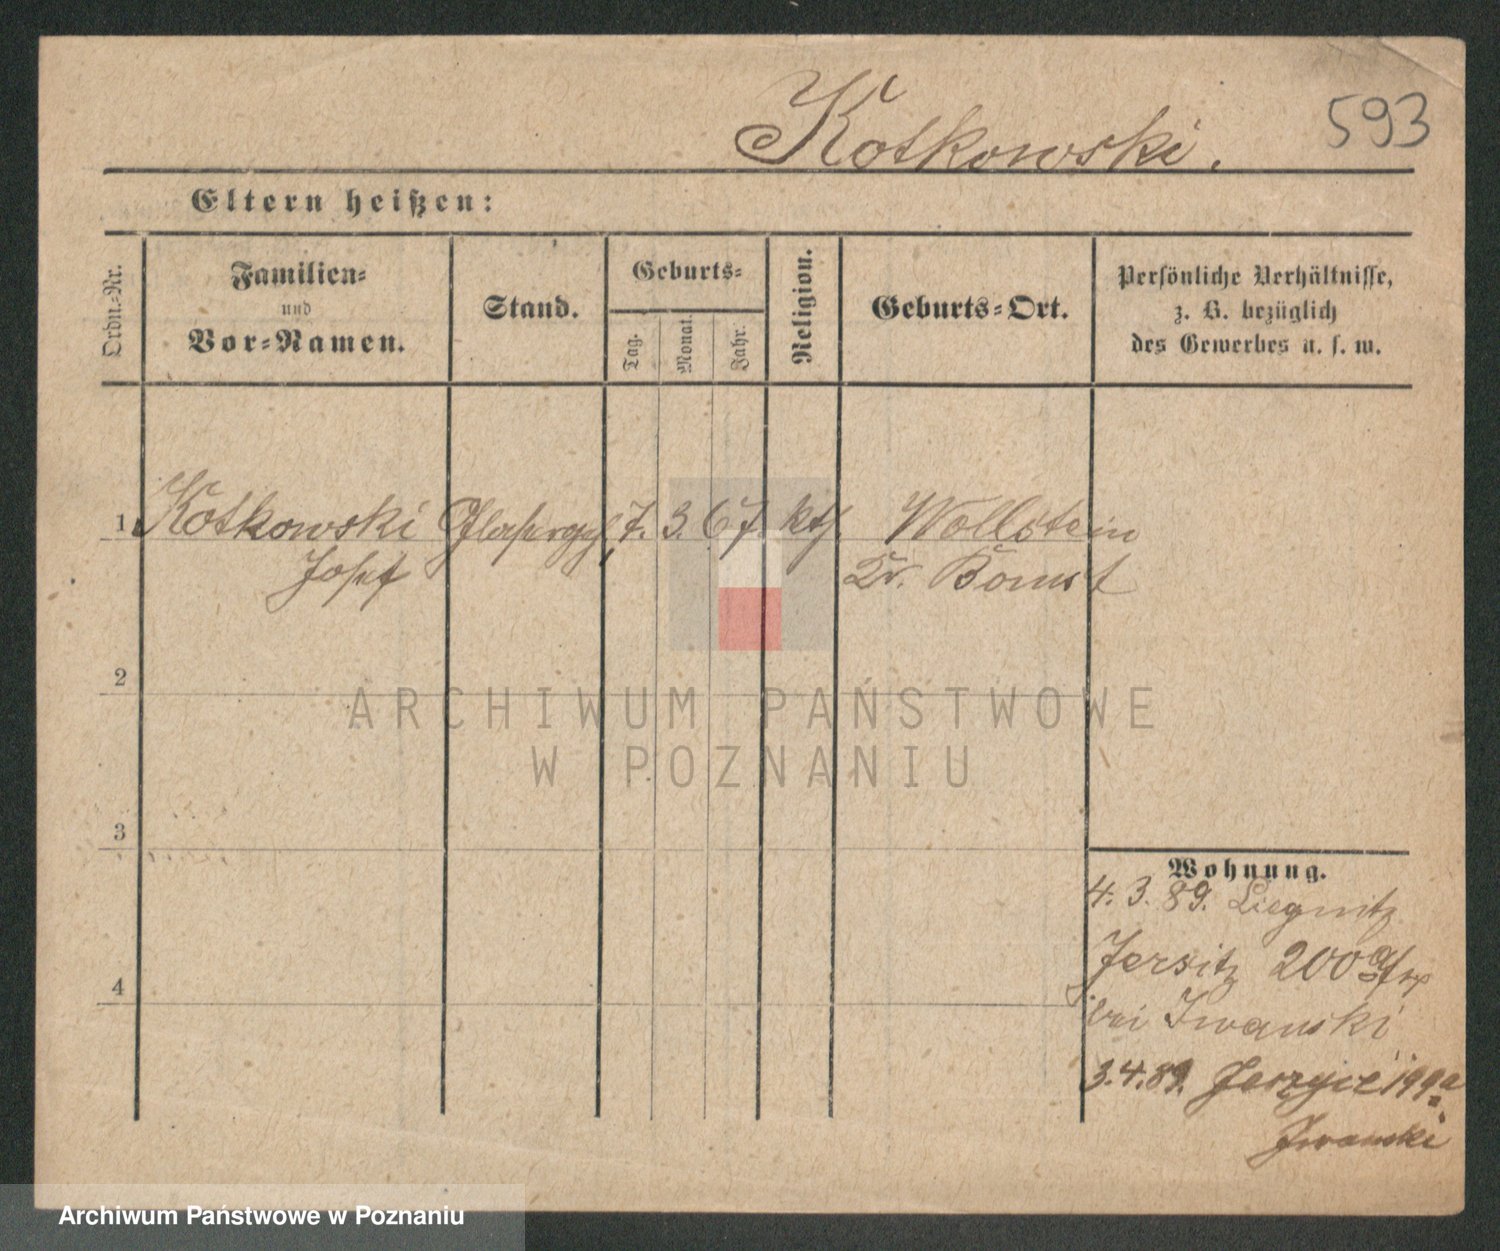 593
Kotkowski.
Eltern heißen:
Ordn.-Nr.
Familien-
und
Vor-Namen.
Stand.
Geburts-
Tag.
Monat.
Jahr.
Religion.
Geburts-Ort.
Persönliche Verhältnisse,
z. B. bezüglich
des Gewerbes u. s. w.
1 Kotkowski Glaserges. 7. 3. 67. kth. Wollstein
Josef Kr. Bomst
2
ARCHIWUM PAŃSTWOWE
W POZNANIU
3
Wohnung.
4. 3. 89. Liegnitz
Jersitz 200a
4
bei Iwanski
3.4.89. Jerzyce 199a
Iwanski
Archiwum Państwowe w Poznaniu